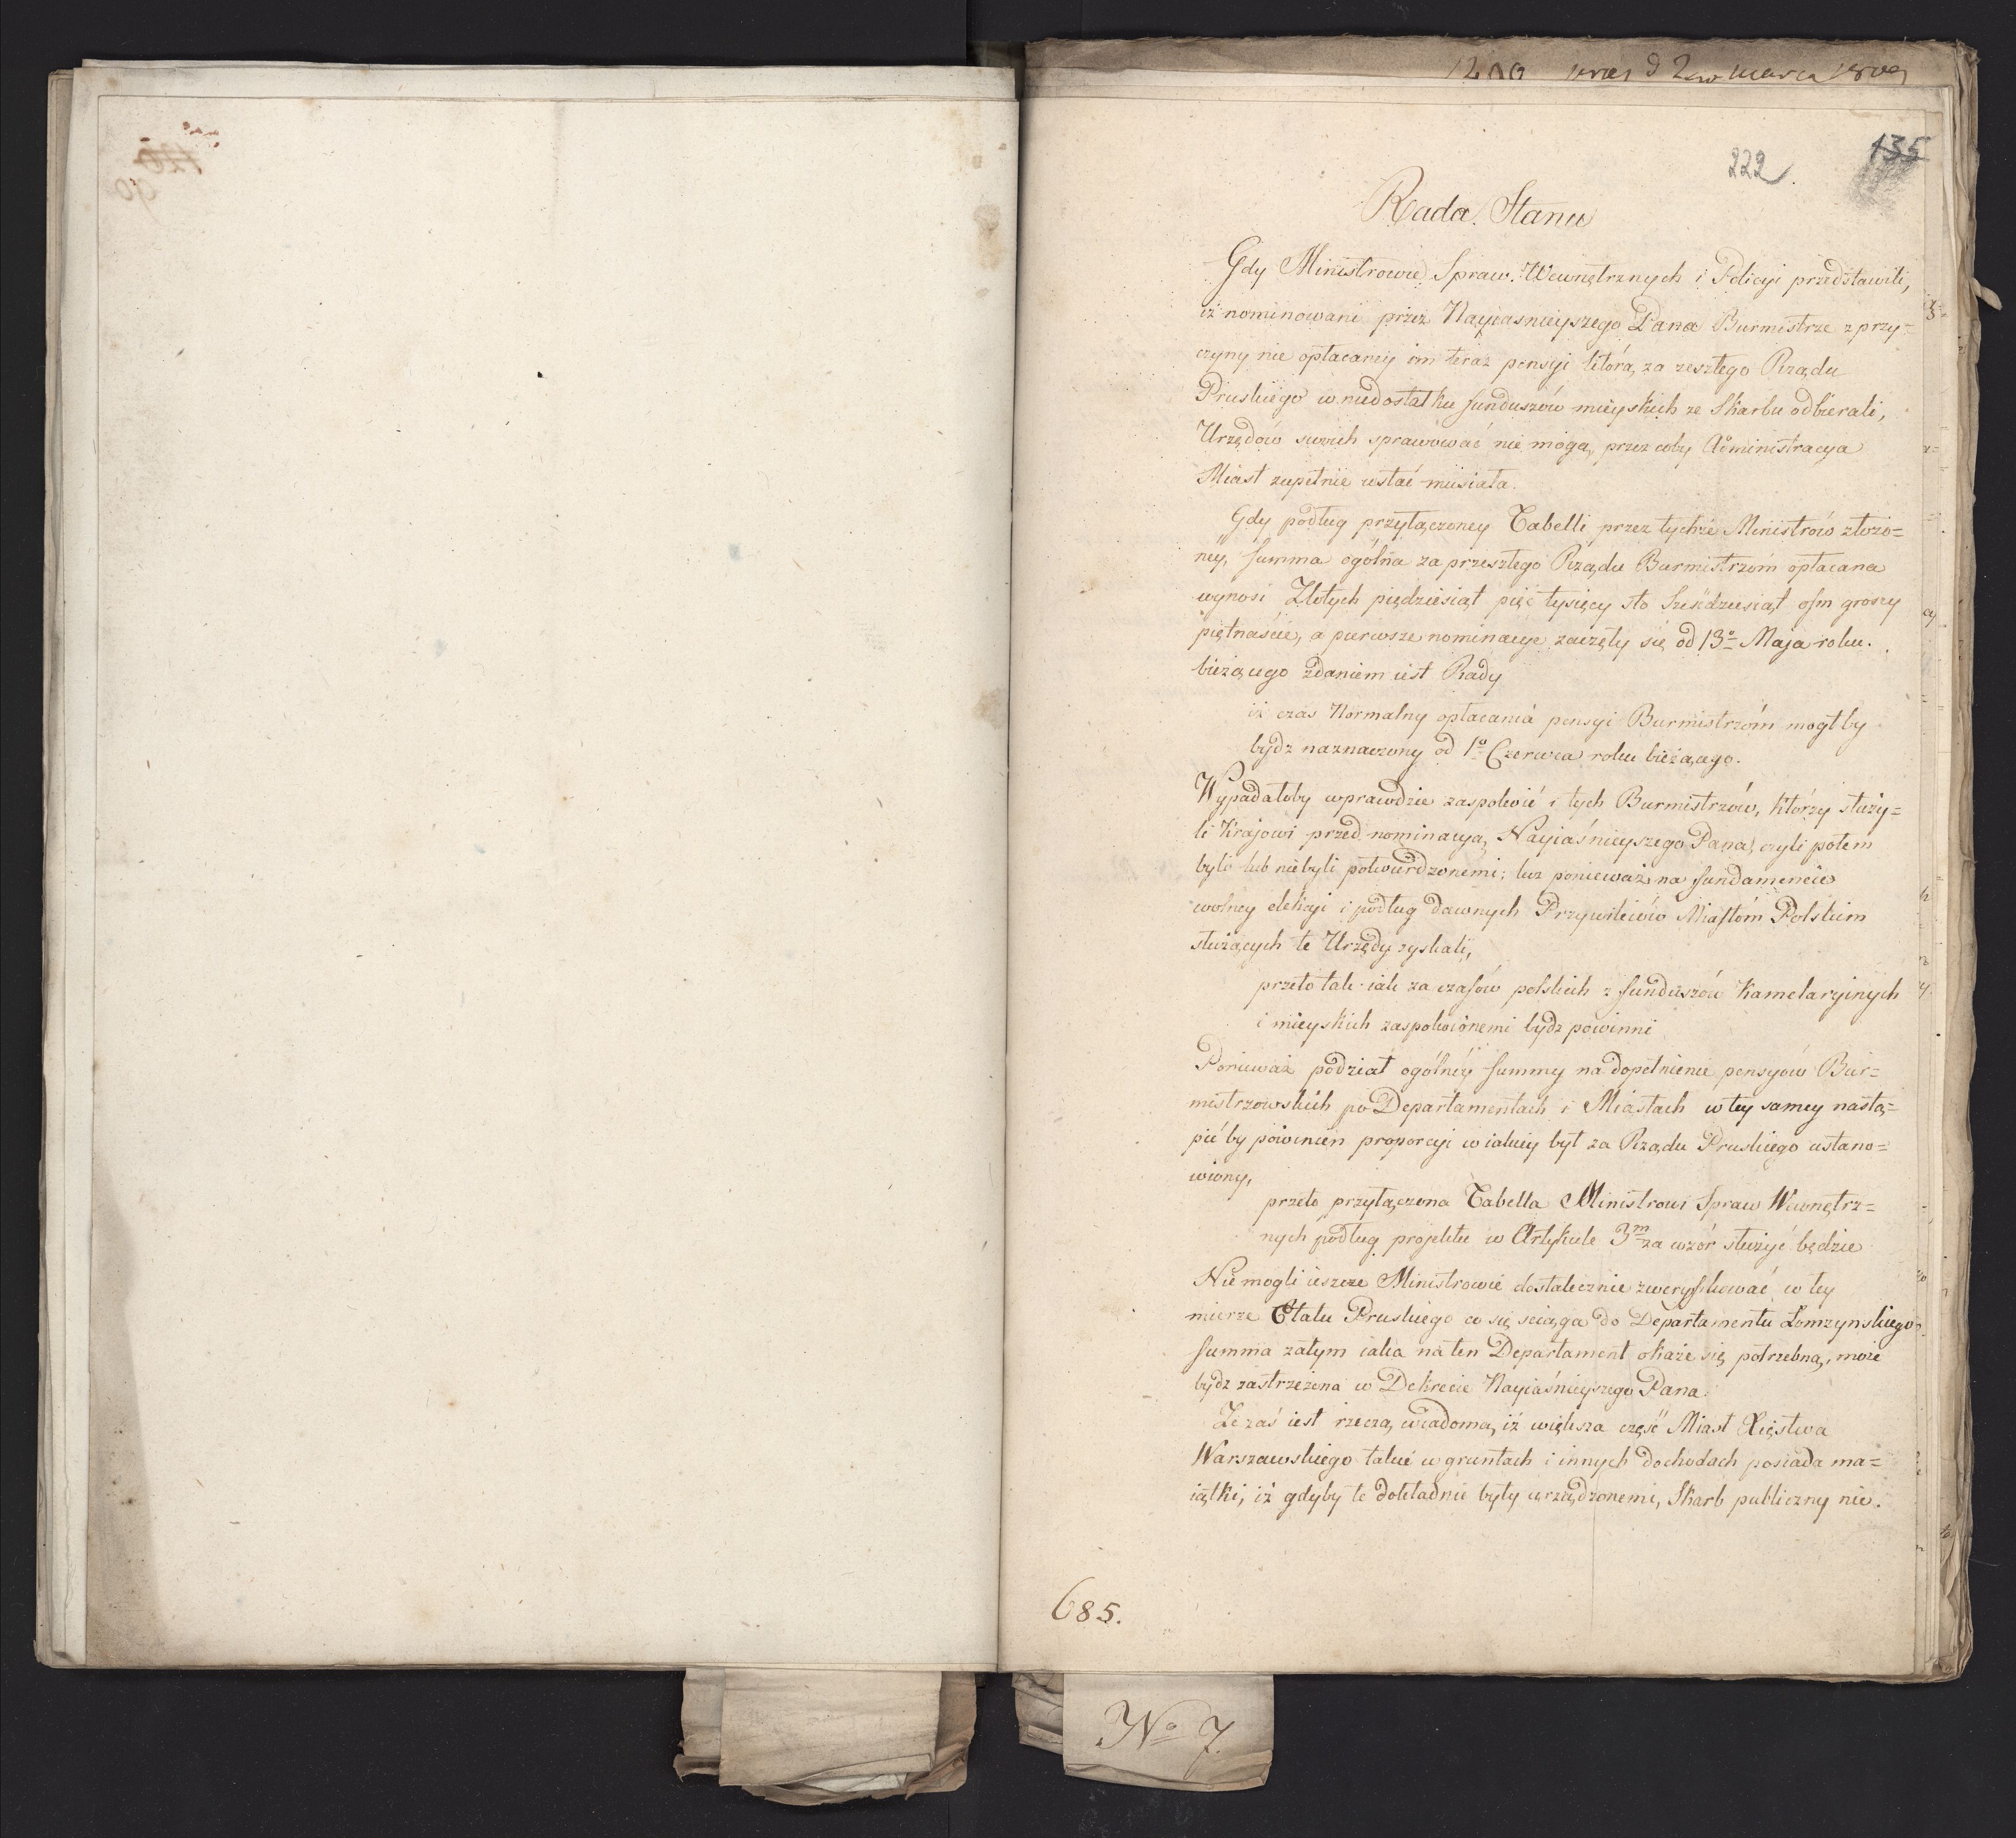 222.
135
Rada Stanu
Gdy Ministrowie Spraw Wewnętrznych i Policyi przedstawili,
iż nominowani przez Nayiasnieyszego Pana Burmistrze z przy-
czyny nie opłacaney im teraz pensyi którą za zeszłego Rządu
Pruskiego w niedostatku funduszów mieyskich ze Skarbu odbierali,
Urzędów swoich sprawować nie mogą, przez coby Administracya
Miast zupełnie ustać musiała.
Gdy podług przyłączoney Tabelli przez tychże Ministrów złożo=
ney, summa ogólna za przeszłego Rządu Burmistrzom opłacana
wynosi Złotych piędziesiąt pięć tysięcy sto sześdziesiąt osm groszy
piętnaście, a pierwsze nominacye zaczęły się od 13º Maja roku
bieżącego zdaniem iest Rady
iż czas Normalny opłacania pensyi Burmistrzóm mogłby
bydz naznaczony od 1º Czerwca roku bieżącego.
Wypadałoby wprawdzie zaspokoić i tych Burmistrzów, którzy służy=
li Krajowi przed nominacyą Nayiaśnieyszego Pana, czyli potem
byli lub niebyli potwierdzonemi; lecz ponieważ na fundamencie
wolney elekcyi i podług dawnych Przywileiów Miastóm Polskim
służących te Urzędy zyskali,
przeto tak iak za czasów polskich z funduszów Kamelaryinych
i mieyskich zaspokoionemi bydz powinni
Ponieważ podział ogólney summy na dopełnienie pensyów Bur=
mistrzowskich po Departamentach i Miastach w tey samey nastą=
pić by powinien proporcyi w iakiey był za Rządu Pruskiego ustano=
wiony,
przeto przyłączona Tabella Ministrowi Spraw Wewnętrz=
nych podług projektu w Artykule 3m za wzór służyć będzie
Nie mogli ieszcze Ministrowie dostatecznie zweryfikować w tey
mierze Etatu Pruskiego co się sciąga do Departamentu Łomzynskiego
summa zatym iaka na ten Departament okaże się potrzebną, może
bydz zastrzeżona w Dekrecie Nayiaśnieyszego Pana.
Że zaś iest rzeczą wiadomą, iż większa część Miast Xięstwa
Warszawskiego takie w gruntach i innych dochodach posiada ma=
iątki, iż gdyby te dokładnie były urządzonemi, Skarb publiczny nie
685.
No 7.